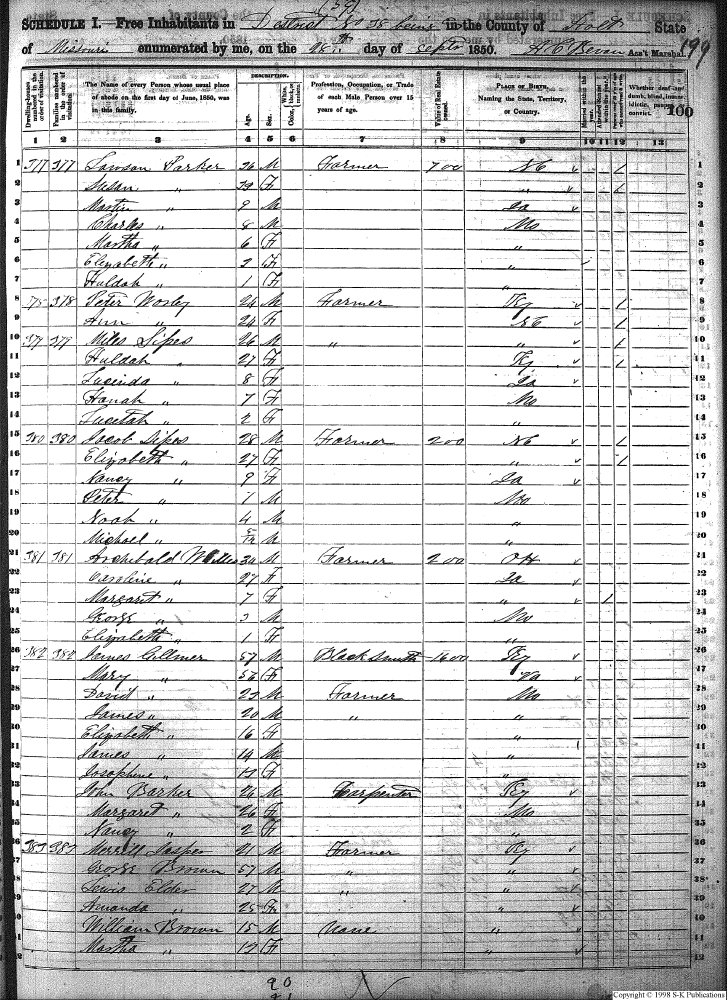 SCHEDULE I.—Free Inhabitants in District No 38 in the County of Holt State
of Missouri enumerated by me, on the 28th day of Septr 1850. Ass't Marshal. 199
100
Dwelling-houses numbered in the order of visitation.
Families numbered in the order of visitation.
The Name of every Person whose usual place of abode on the first day of June, 1850, was in this family.
DESCRIPTION.
Age.
Sex.
Color, White, black, or mulatto.
Profession, Occupation, or Trade of each Male Person over 15 years of age.
Value of Real Estate
PLACE OF BIRTH, Naming the State, Territory, or Country.
Whether deaf and dumb, blind, insane, idiotic, pauper, or convict.
1 2 3 4 5 6 7 8 9 10 11 12 13
1 377 377 Lawson Parker 36 M Farmer 700 NC 1
2 Susan " 39 F " 2
3 Martin " 9 M Ia 3
4 Charles " 8 M Mo 4
5 Martha " 6 F " 5
6 Elizabeth " 3 F " 6
7 Huldah " 1 F " 7
8 378 378 Peter Mosby 24 M Farmer Ky 8
9 Ann " 24 F NC 9
10 379 379 Miles Sipes 26 M " " 10
11 Huldah " 27 F Ky 11
12 Lucinda " 8 F Ia 12
13 Hanah " 7 F Mo 13
14 Lucetah " 2 F " 14
15 380 380 Jacob Sipes 28 M Farmer 200 NC 15
16 Elizabeth " 27 F " 16
17 Nancy " 9 F Ia 17
18 Peter " 1 M Mo 18
19 Noah " 4 M " 19
20 Michael " M " 20
21 381 381 Archibald 34 M Farmer 200 OH 21
22 Caroline " 27 F Ia 22
23 Margaret " 7 F " 23
24 George " 3 M Mo 24
25 Elizabeth " 1 F " 25
26 382 382 James Gillmer 57 M Blacksmith 1600 Ky 26
Mary " 56 F Va
David " 23 M Farmer Mo
James " 20 M " "
Elizabeth " 16 F "
James " 14 M "
Josephine " 13 F "
John Barker 26 M Carpenter Ky
Margaret " 26 F Mo
Nancy " 2 F "
383 383 Merrill Jasper 21 M Farmer Ky
George Brown 57 M " "
Lewis Elder 27 M " "
Amanda " 25 F "
William Brown 15 M None "
Martha " 13 F "
90
Copyright © 1998 S-K Publications